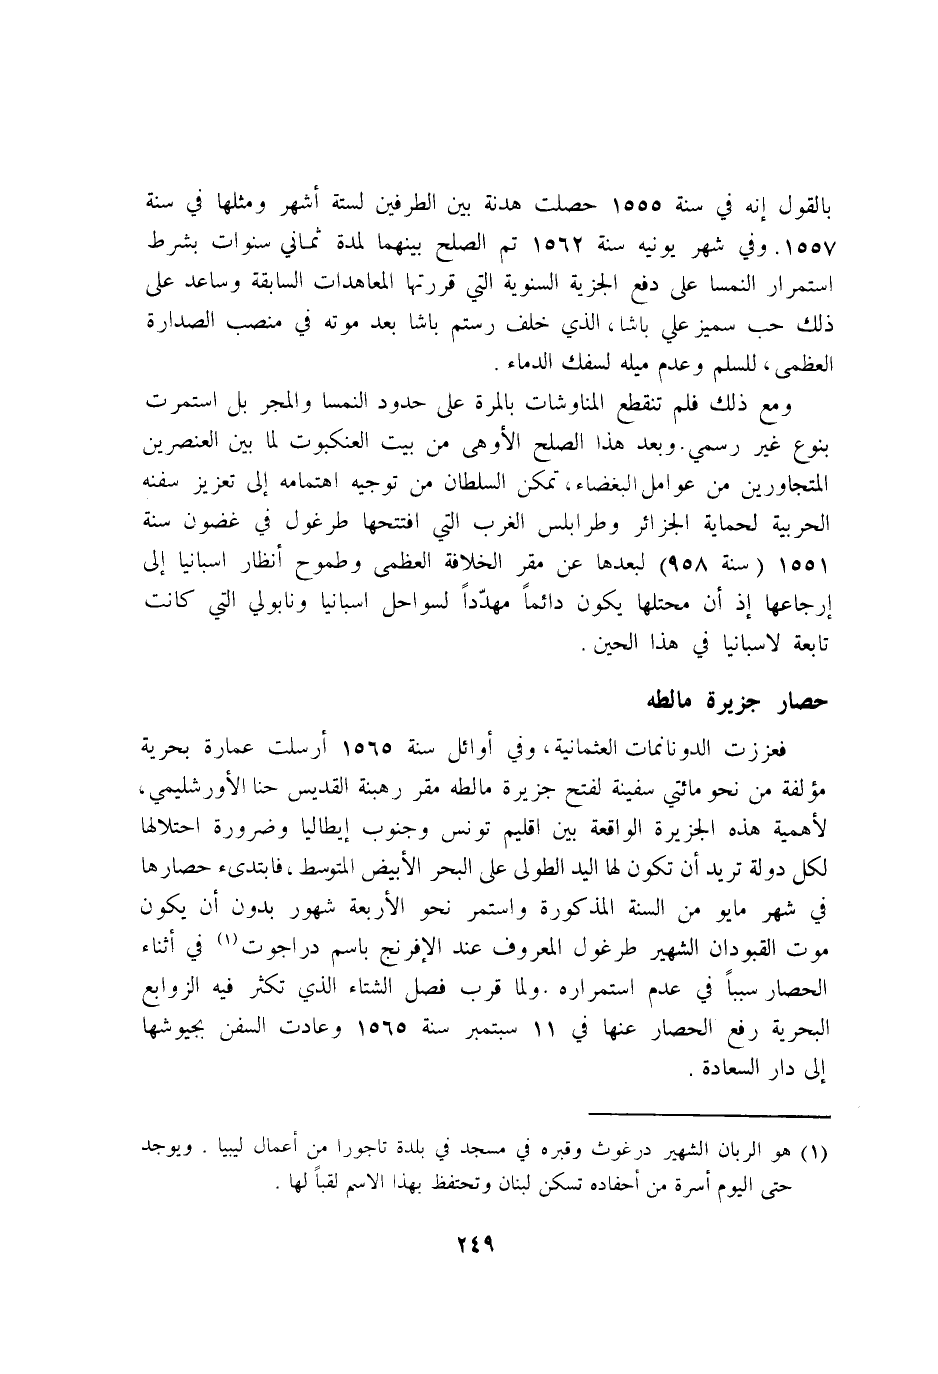 بالقول إنه في سنة ١٥٥٥ حصلت هدنة بين الطرفين لستة أشهر ومثلها في سنة
١٥٥٧. وفي شهر يونيه سنة ١٥٦٢ تم الصلح بينهما لمدة ثماني سنوات بشرط
استمرار النمسا على دفع الجزية السنوية التي قررتها المعاهدات السابقة وساعد على
ذلك حب سميز علي باشا، الذي خلف رستم باشا بعد موته في منصب الصدارة
العظمى، للسلم وعدم ميله لسفك الدماء .
ومع ذلك فلم تنقطع المناوشات بالمرة على حدود النمسا والمجر بل استمرت
بنوع غير رسمي. وبعد هذا الصلح الأوهى من بيت العنكبوت لما بين العنصرين
المتجاورين من عوامل البغضاء، تمكن السلطان من توجيه اهتمامه إلى تعزيز سفنه
الحربية لحماية الجزائر وطرابلس الغرب التي افتتحها طرغول في غضون سنة
١٥٥١ (سنة ٩٥٨) لبعدها عن مقر الخلافة العظمى وطموح أنظار اسبانيا إلى
إرجاعها إذ أن محتلها يكون دائماً مهدّداً لسواحل اسبانيا ونابولي التي كانت
تابعة لاسبانيا في هذا الحين .
حصار جزيرة مالطه
فعززت الدونانمات العثمانية، وفي أوائل سنة ١٥٦٥ أرسلت عمارة بحرية
مؤلفة من نحو مائتي سفينة لفتح جزيرة مالطه مقر رهبنة القديس حنا الأورشليمي،
لأهمية هذه الجزيرة الواقعة بين اقليم تونس وجنوب إيطاليا وضرورة احتلالها
لكل دولة تريد أن تكون لها اليد الطولى على البحر الأبيض المتوسط، فابتدىء حصارها
في شهر مايو من السنة المذكورة واستمر نحو الأربعة شهور بدون أن يكون
موت القبودان الشهير طرغول المعروف عند الإفرنج باسم دراجوت(١) في أثناء
الحصار سبباً في عدم استمراره .ولما قرب فصل الشتاء الذي تكثر فيه الزوابع
البحرية رفع الحصار عنها في ١١ سبتمبر سنة ١٥٦٥ وعادت السفن بجيوشها
إلى دار السعادة .
(١) هو الربان الشهير درغوث وقبره في مسجد في بلدة تاجورا من أعمال ليبيا . ويوجد
حتى اليوم أسرة من أحفاده تسكن لبنان وتحتفظ بهذا الاسم لقباً لها .
٢٤٩